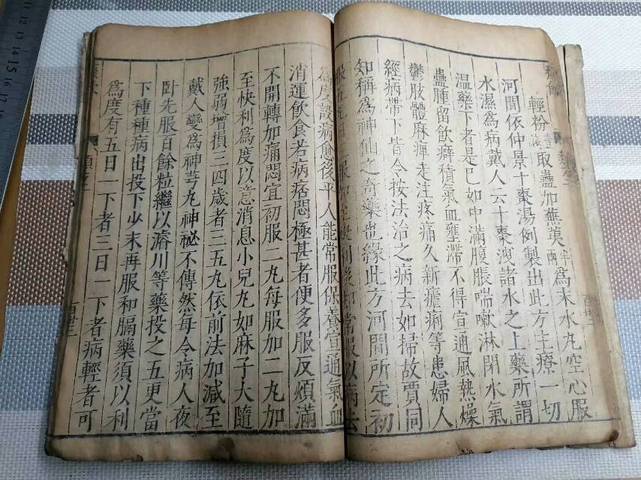 輕粉 取蟲加蕪荑 爲末水丸空心服
河間依仲景十棗湯例製出此方主療一切
水濕爲病戴人云十棗瀉諸水之上藥所謂
溫藥下者是已如中滿腹脹喘嗽淋閉水氣
蠱腫留飲癖積氣血壅滯不得宣通風熱燥
鬱肢體麻痺走注疼痛久新瘧痢等患婦人
經病帶下皆令按法治之病去如掃故賈同
知稱爲神仙之奇藥也緣此方河間所定初
服 服如 利後 常服以病去
爲度設病愈後平人能常服保養宣通氣血
消運飲食若病痞悶極甚者便多服反煩滿
不開轉加痛悶宜初服二丸每服加二丸加
至快利爲度以意消息小兒丸如麻子大隨
強弱增損三四歲者三五丸依前法加減至
戴人變爲神芎丸神祕不傳然每令病人夜
臥先服百餘粒繼以濬川等藥投之五更當
下種種病出投下少未再服和膈藥須以利
爲度有五日一下者三日一下者病輕者可